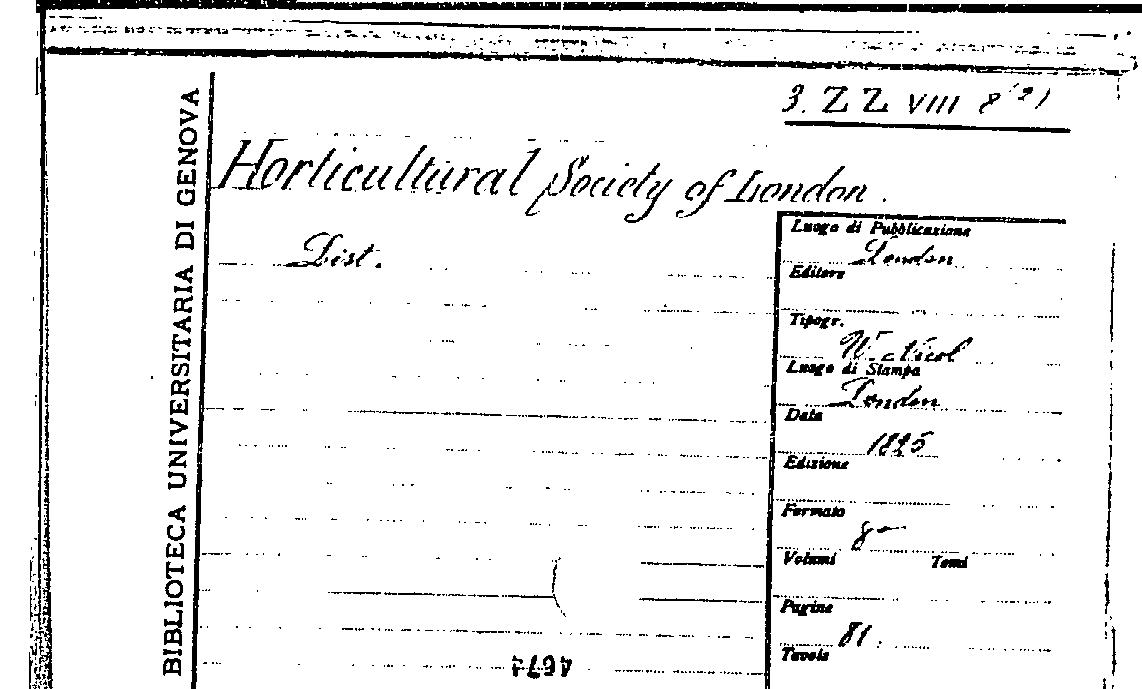 3. ZZ VIII 8 (21
BIBLIOTECA UNIVERSITARIA DI GENOVA
Horticultural Society of London.
List.
Luogo di Pubblicazione
London
Editore
Tipogr.
W. Nicol
Luogo di Stampa
London
Data
1825
Edizione
Formato
8°
Volumi Tomi
Pagine
81.
Tavole